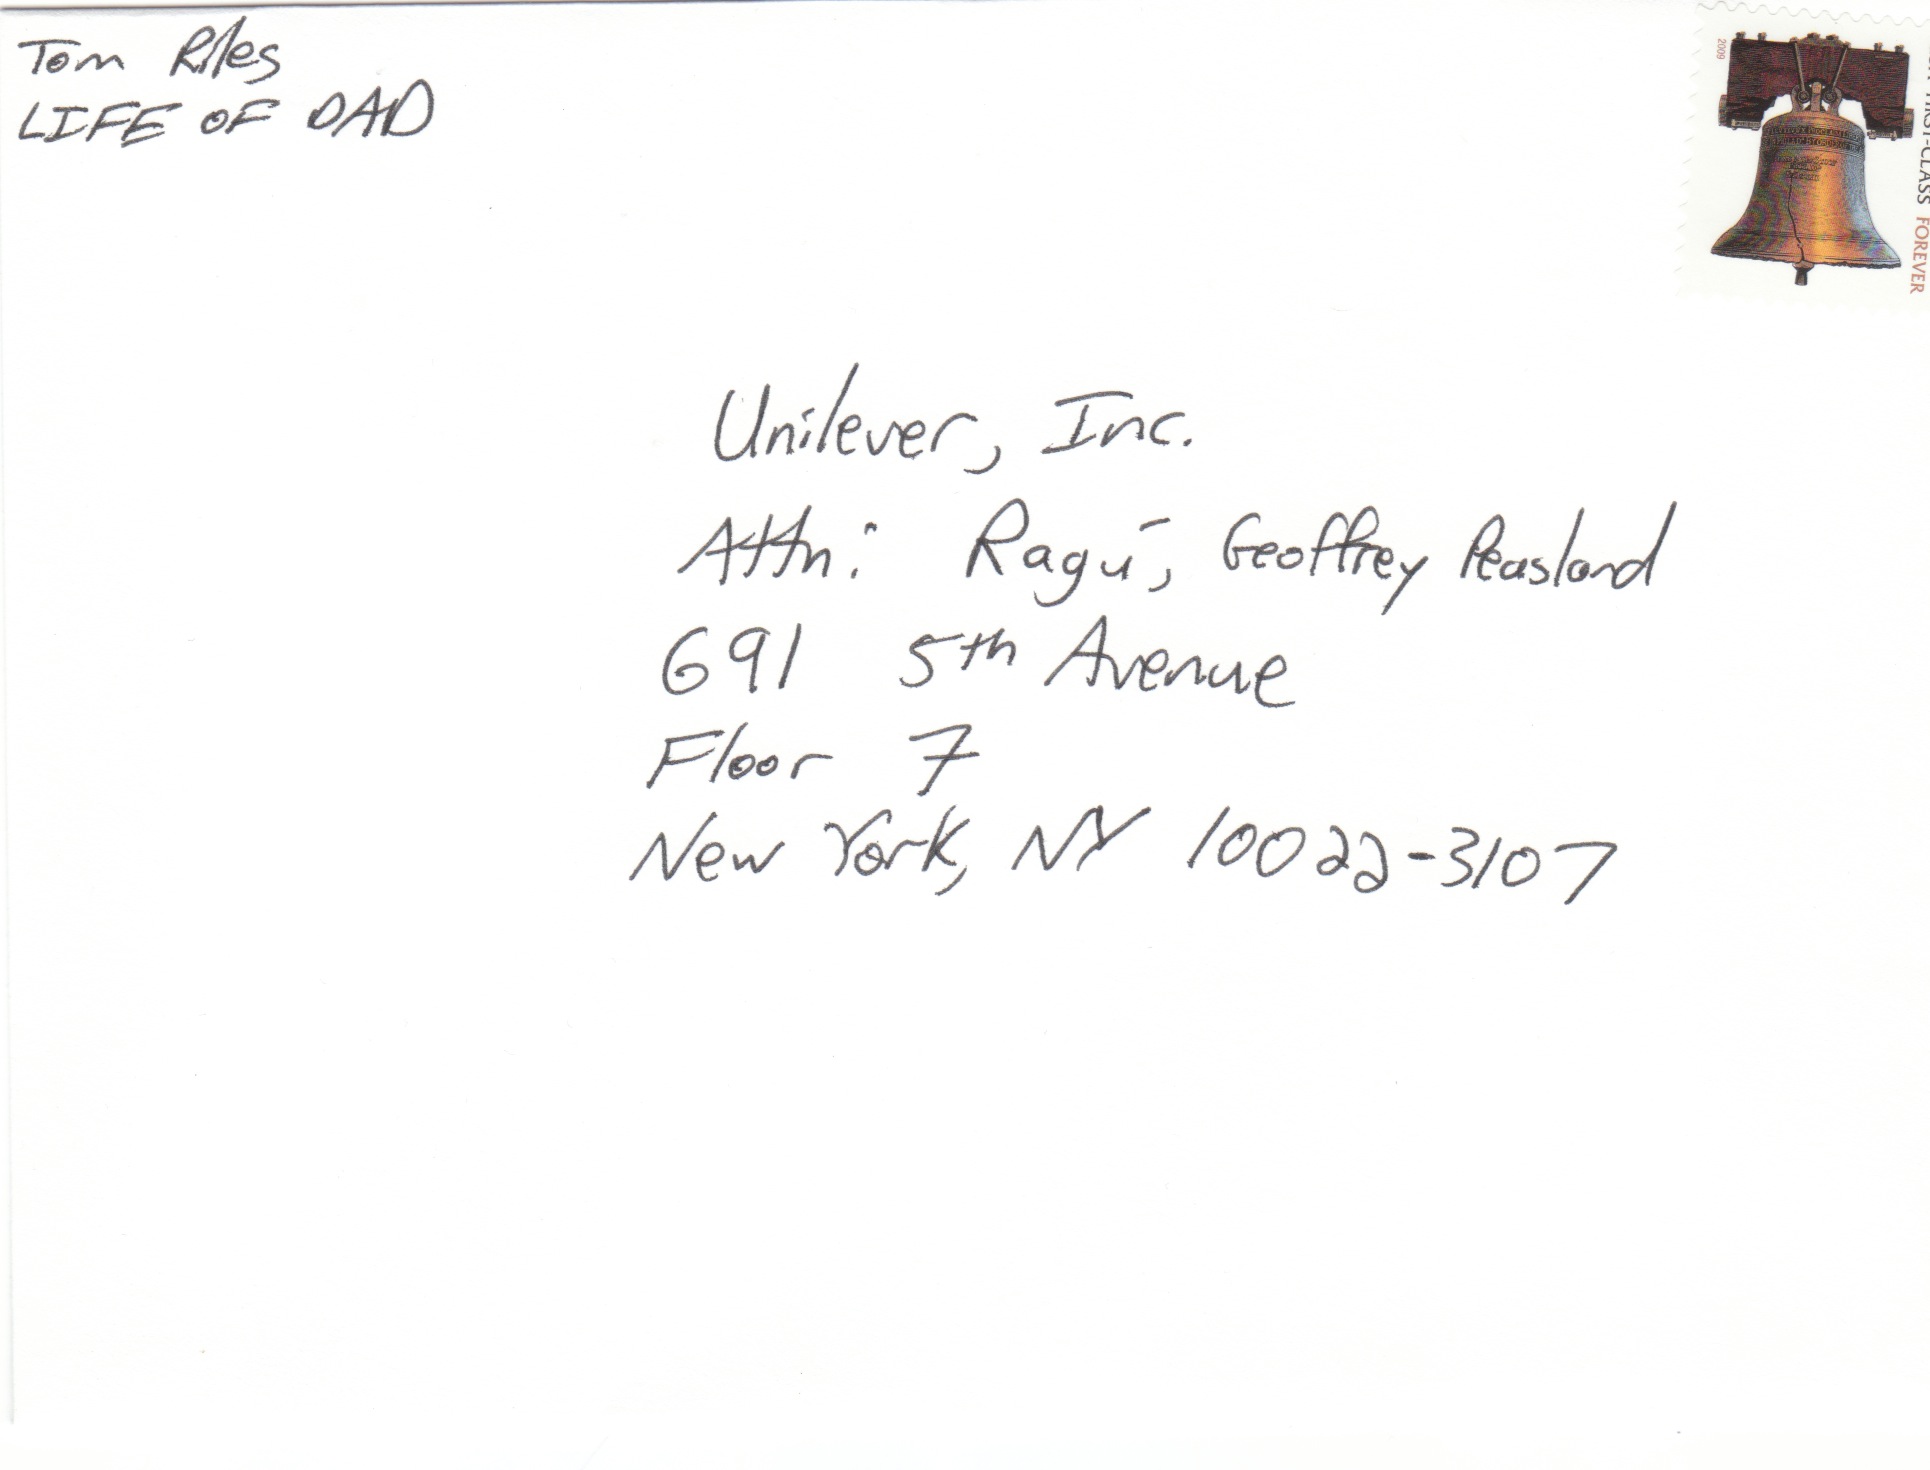 Tom Riles
LIFE OF DAD
2009
FIRST-CLASS FOREVER
Unilever, Inc.
Attn: Ragú, Geoffrey Peasland
691 5th Avenue
Floor 7
New York, NY 10022-3107